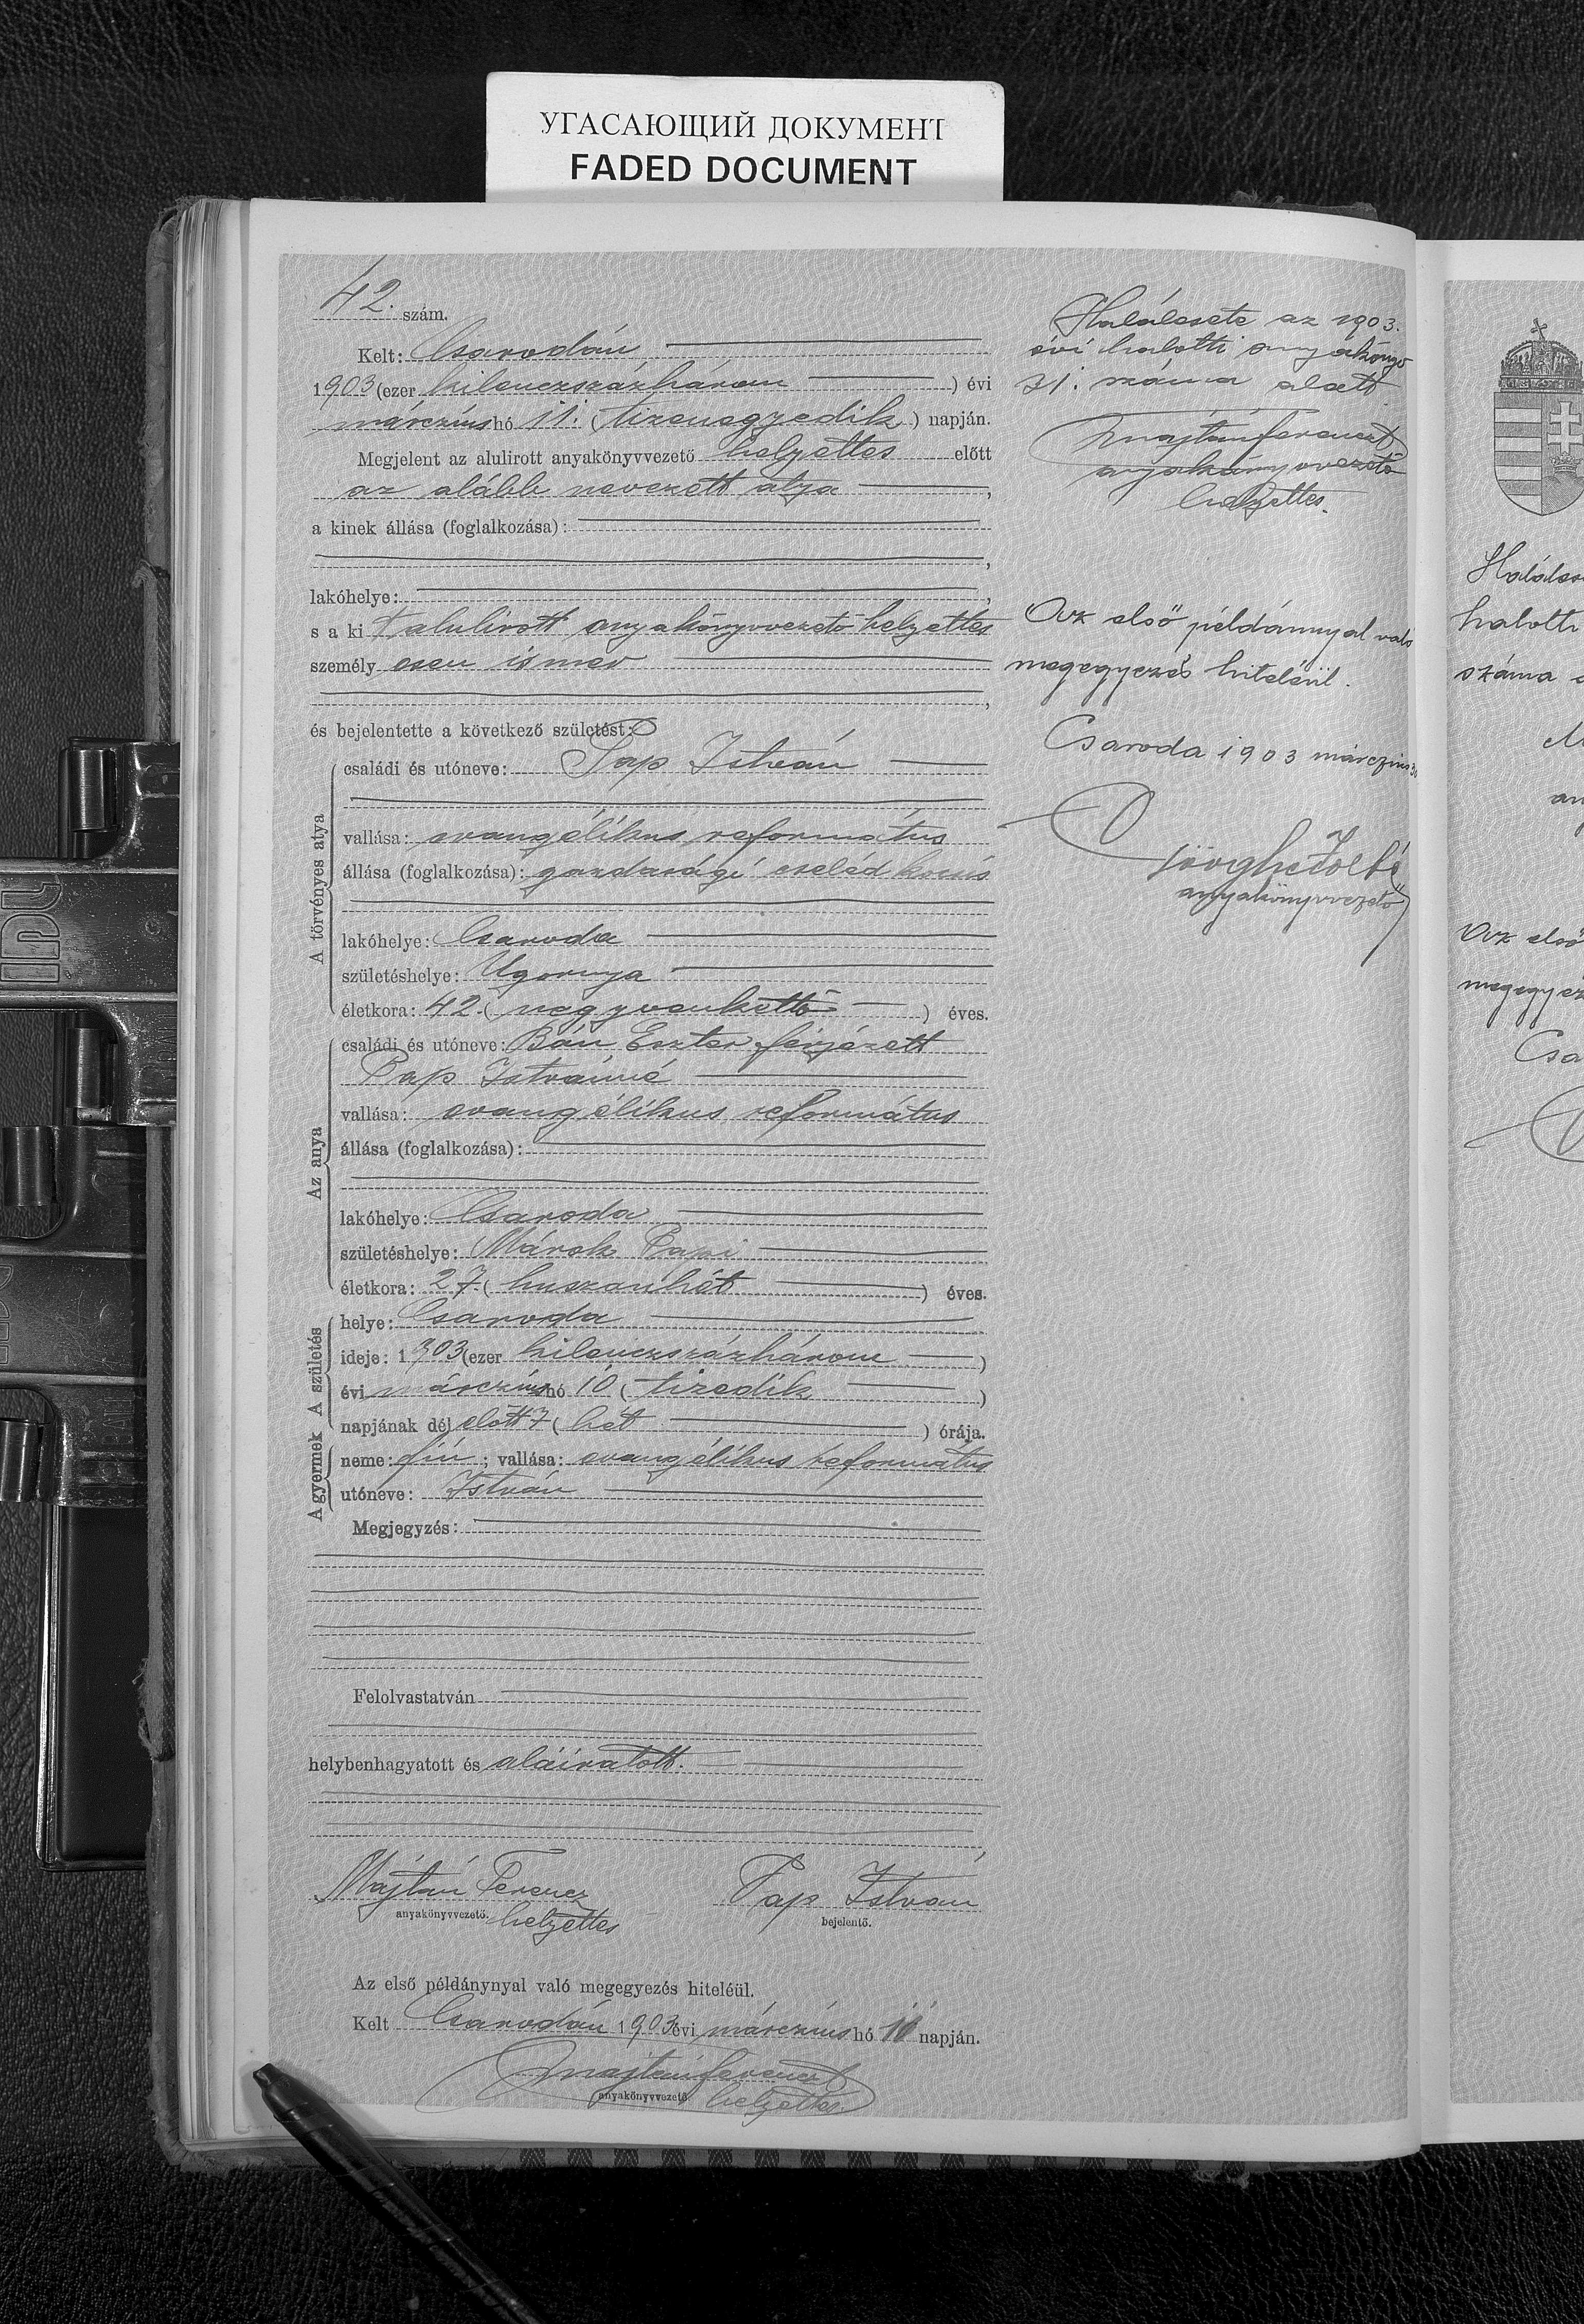 УГАСАЮЩИЙ ДОКУМЕНТ
FADED DOCUMENT
42. szám.
Kelt: Csarodán
1903 (ezer kilenczszázhárom) évi
márczius hó 11. (tizenegyedik) napján.
Megjelent az alulirott anyakönyvvezető helyettes előtt
az alább nevezett atya,
a kinek állása (foglalkozása):
,
lakóhelye:,
s a kit alulirott anyakönyvvezető helyettes
személyesen ismer
,
és bejelentette a következő születést:
A törvényes atya
családi és utóneve: Pap István
vallása: evangélikus református
állása (foglalkozása): gazdasági cseléd kocsis
lakóhelye: Csaroda
születéshelye: Ugornya
életkora: 42. (negyvenkettő) éves.
Az anya
családi és utóneve: Bán Eszter férjezett
Pap Istvánné
vallása: evangélikus református
állása (foglalkozása):
lakóhelye: Csaroda
születéshelye: Márok Papi
életkora: 27. (huszonhét) éves.
A születés
helye: Csaroda
ideje: 1903 (ezer kilenczszázhárom)
évi márczius hó 10 (tizedik)
napjának dél előtt 7 (hét) órája.
A gyermek
neme: fiú; vallása: evangélikus református
utóneve: István
Megjegyzés:
Felolvastatván
helybenhagyatott és aláiratott.
Majtán Ferencz
anyakönyvvezető. helyettes
Pap István
bejelentő.
Az első példánynyal való megegyezés hiteléül.
Kelt Csarodán 1903 évi márczius hó 11 napján.
Majtán Ferencz
anyakönyvvezető helyettes
Halálesete az 1903.
évi halotti anyakönyv
31. száma alatt
Majtán Ferencz
anyakönyvvezető
helyettes.
Az első példánnyal való
megegyezés hiteléül.
Csaroda 1903 márczius
anyakönyvvezető
halotti
száma
Az első